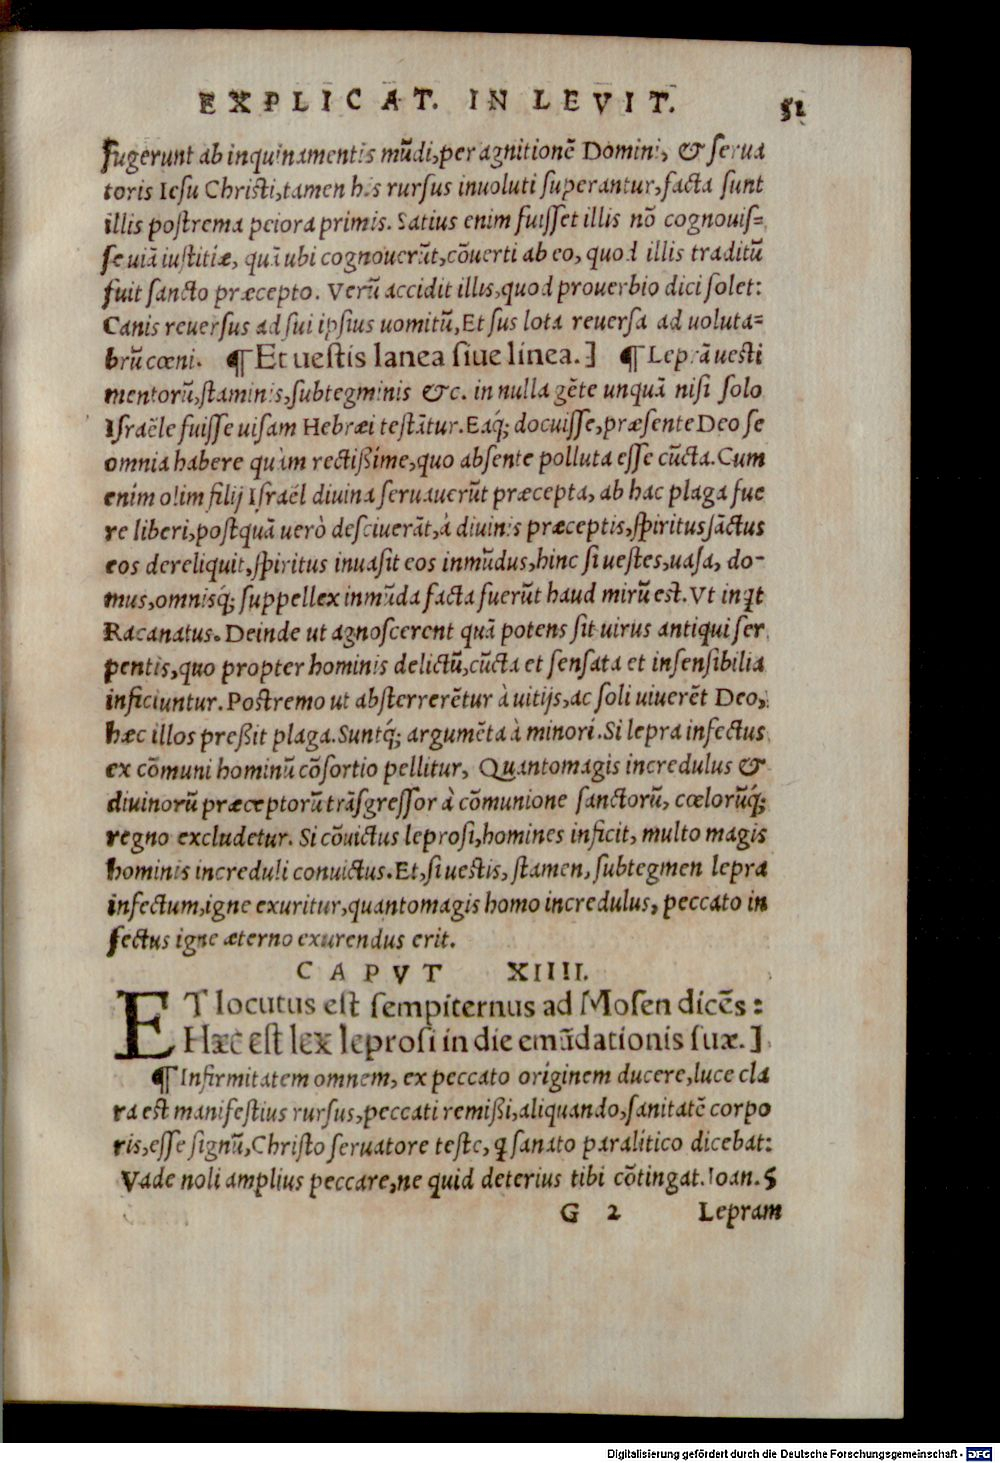 EXPLICAT. IN LEVIT. 51
fugerunt ab inquinamentis mũdi, per agnitionẽ Domini, & serua
toris Iesu Christi, tamen his rursus inuoluti superantur, facta sunt
illis postrema peiora primis. Satius enim fuisset illis nõ cognouis=
se uiã iustitiæ, quã ubi cognouerũt, cõuerti ab eo, quod illis traditũ
fuit sancto præcepto. Verũ accidit illis, quod prouerbio dici solet:
Canis reuersus ad sui ipsius uomitũ, Et sus lota reuersa ad uoluta=
brũ cœni. ¶ Et uestis lanea siue linea.] ¶ Leprã uesti
mentorũ, staminis, subtegminis &c. in nulla gẽte unquã nisi solo
Israële fuisse uisam Hebræi testãtur. Eaq́; docuisse, præsente Deo se
omnia habere quàm rectißime, quo absente polluta esse cũcta. Cum
enim olim filij Israël diuina seruauerũt præcepta, ab hac plaga fue
re liberi, postquã uerò desciuerãt, à diuinis præceptis, spiritus sãctus
eos dereliquit, spiritus inuasit eos inmũdus, hinc si uestes, uasa, do-
mus, omnisq́; suppellex inmũda facta fuerũt haud mirũ est. Vt inq̃t
Racanatus. Deinde ut agnoscerent quã potens sit uirus antiqui ser
pentis, quo propter hominis delictũ, cũcta et sensata et insensibilia
inficiuntur. Postremo ut absterrerẽtur à uitijs, ac soli uiuerẽt Deo,
hæc illos preßit plaga. Suntq́; argumẽta à minori. Si lepra infectus
ex cõmuni hominũ cõsortio pellitur, Quantomagis incredulus &
diuinorũ præceptorũ trãsgressor à cõmunione sanctorũ, cœlorũq́;
regno excludetur. Si cõuictus leprosi, homines inficit, multo magis
hominis increduli conuictus. Et, si uestis, stamen, subtegmen lepra
infectum, igne exuritur, quantomagis homo incredulus, peccato in
fectus igne æterno exurendus erit.
CAPVT XIIII.
ET locutus est sempiternus ad Mosen dicẽs:
Hæc est lex leprosi in die emũdationis suæ.]
¶ Infirmitatem omnem, ex peccato originem ducere, luce cla
ra est manifestius rursus, peccati remißi, aliquando, sanitatẽ corpo
ris, esse signũ, Christo seruatore teste, q̃ sanato paralitico dicebat:
Vade noli amplius peccare, ne quid deterius tibi cõtingat. Ioan. 5
G 2 Lepram
Digitalisierung gefördert durch die Deutsche Forschungsgemeinschaft - DFG